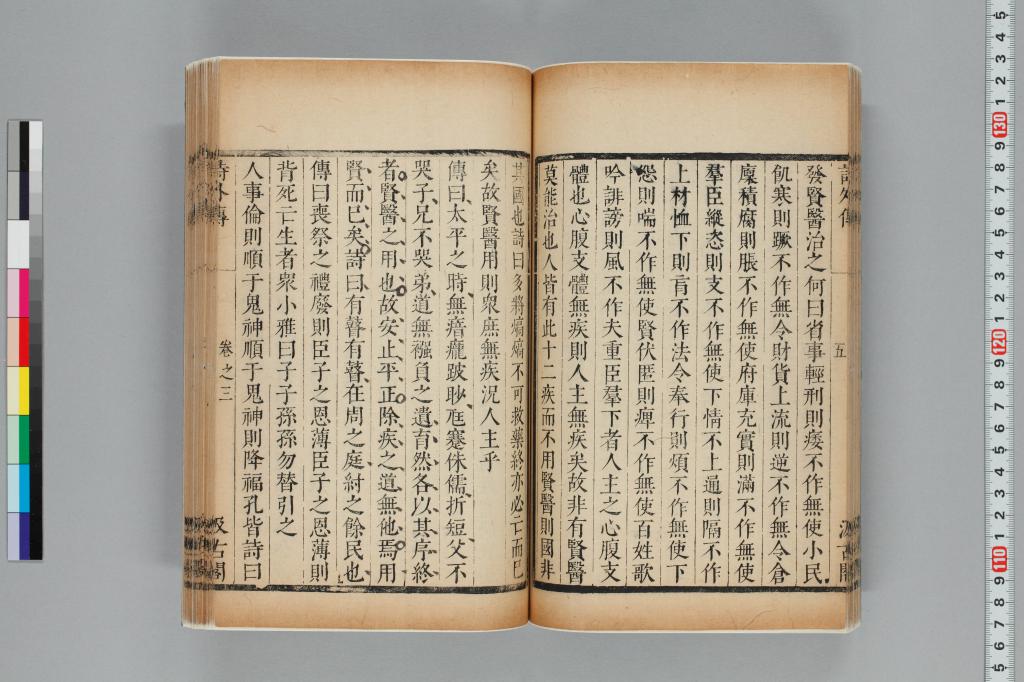 發賢醫治之何曰省事輕刑則痿不作無使小民
飢寒則蹶不作無令財貨上流則逆不作無令倉
廩積腐則脹不作無使府庫充實則滿不作無使
羣臣縱恣則支不作無使下情不上通則隔不作
上材恤下則盲不作法令奉行則煩不作無使下
怨則喘不作無使賢伏匿則痺不作無使百姓歌
吟誹謗則風不作夫重臣羣下者人主之心腹支
體也心腹支體無疾則人主無疾矣故非有賢醫
莫能治也人皆有此十二疾而不用賢醫則國非
其國也詩曰多將熇熇不可救藥終亦必亡而巳
矣故賢醫用則衆庶無疾況人主乎
傳曰太平之時無瘖㾮跛眇尫蹇侏儒折短父不
哭子兄不哭弟道無襁負之遺育然各以其序終
者賢醫之用也故安止平正除疾之道無他焉用
賢而巳矣詩曰有瞽有瞽在周之庭紂之餘民也
傳曰喪祭之禮廢則臣子之恩薄臣子之恩薄則
背死亡生者衆小雅曰子子孫孫勿替引之
人事倫則順于鬼神順于鬼神則降福孔皆詩曰
詩外傳
卷之三
汲古閣
五
130
120
110